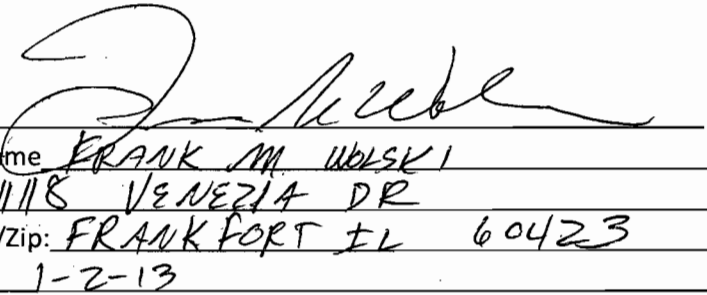 me FRANK M WOLSKI
11118 VENEZIA DR
/Zip: FRANKFORT IL 60423
1-2-13